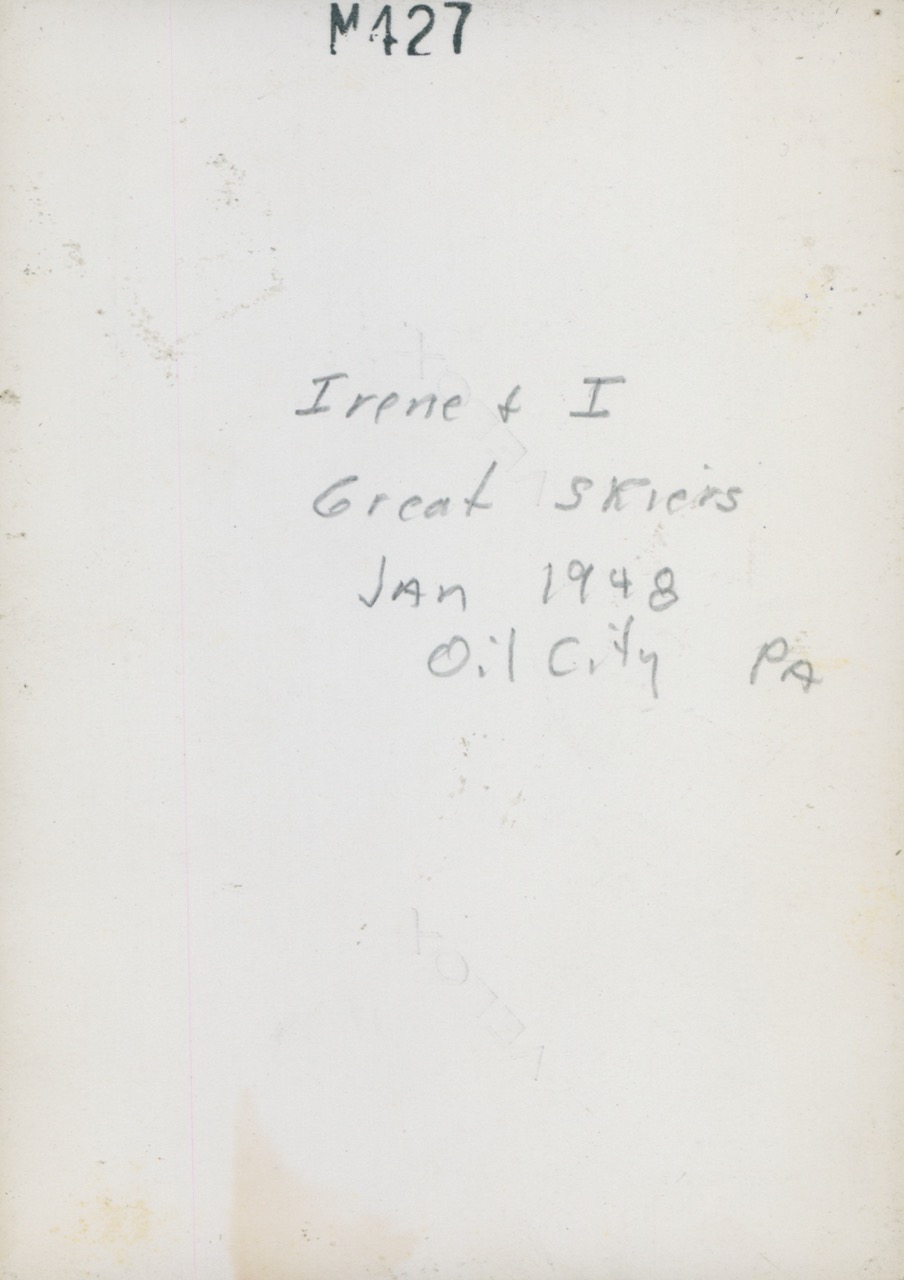 M427
Irene & I
Great Skiers
Jan 1948
Oil City PA